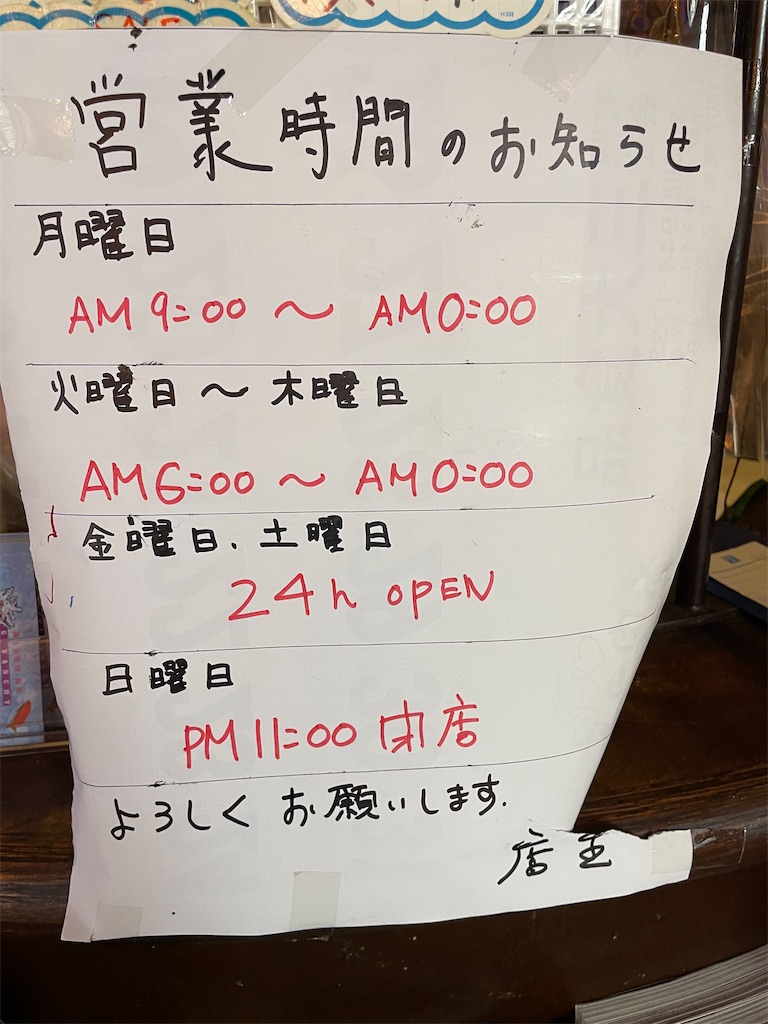 営業時間のお知らせ
月曜日
AM 9:00 〜 AM 0:00
火曜日〜木曜日
AM 6:00 〜 AM 0:00
金曜日、土曜日
24h OPEN
日曜日
PM 11:00 閉店
よろしくお願いします.
店主